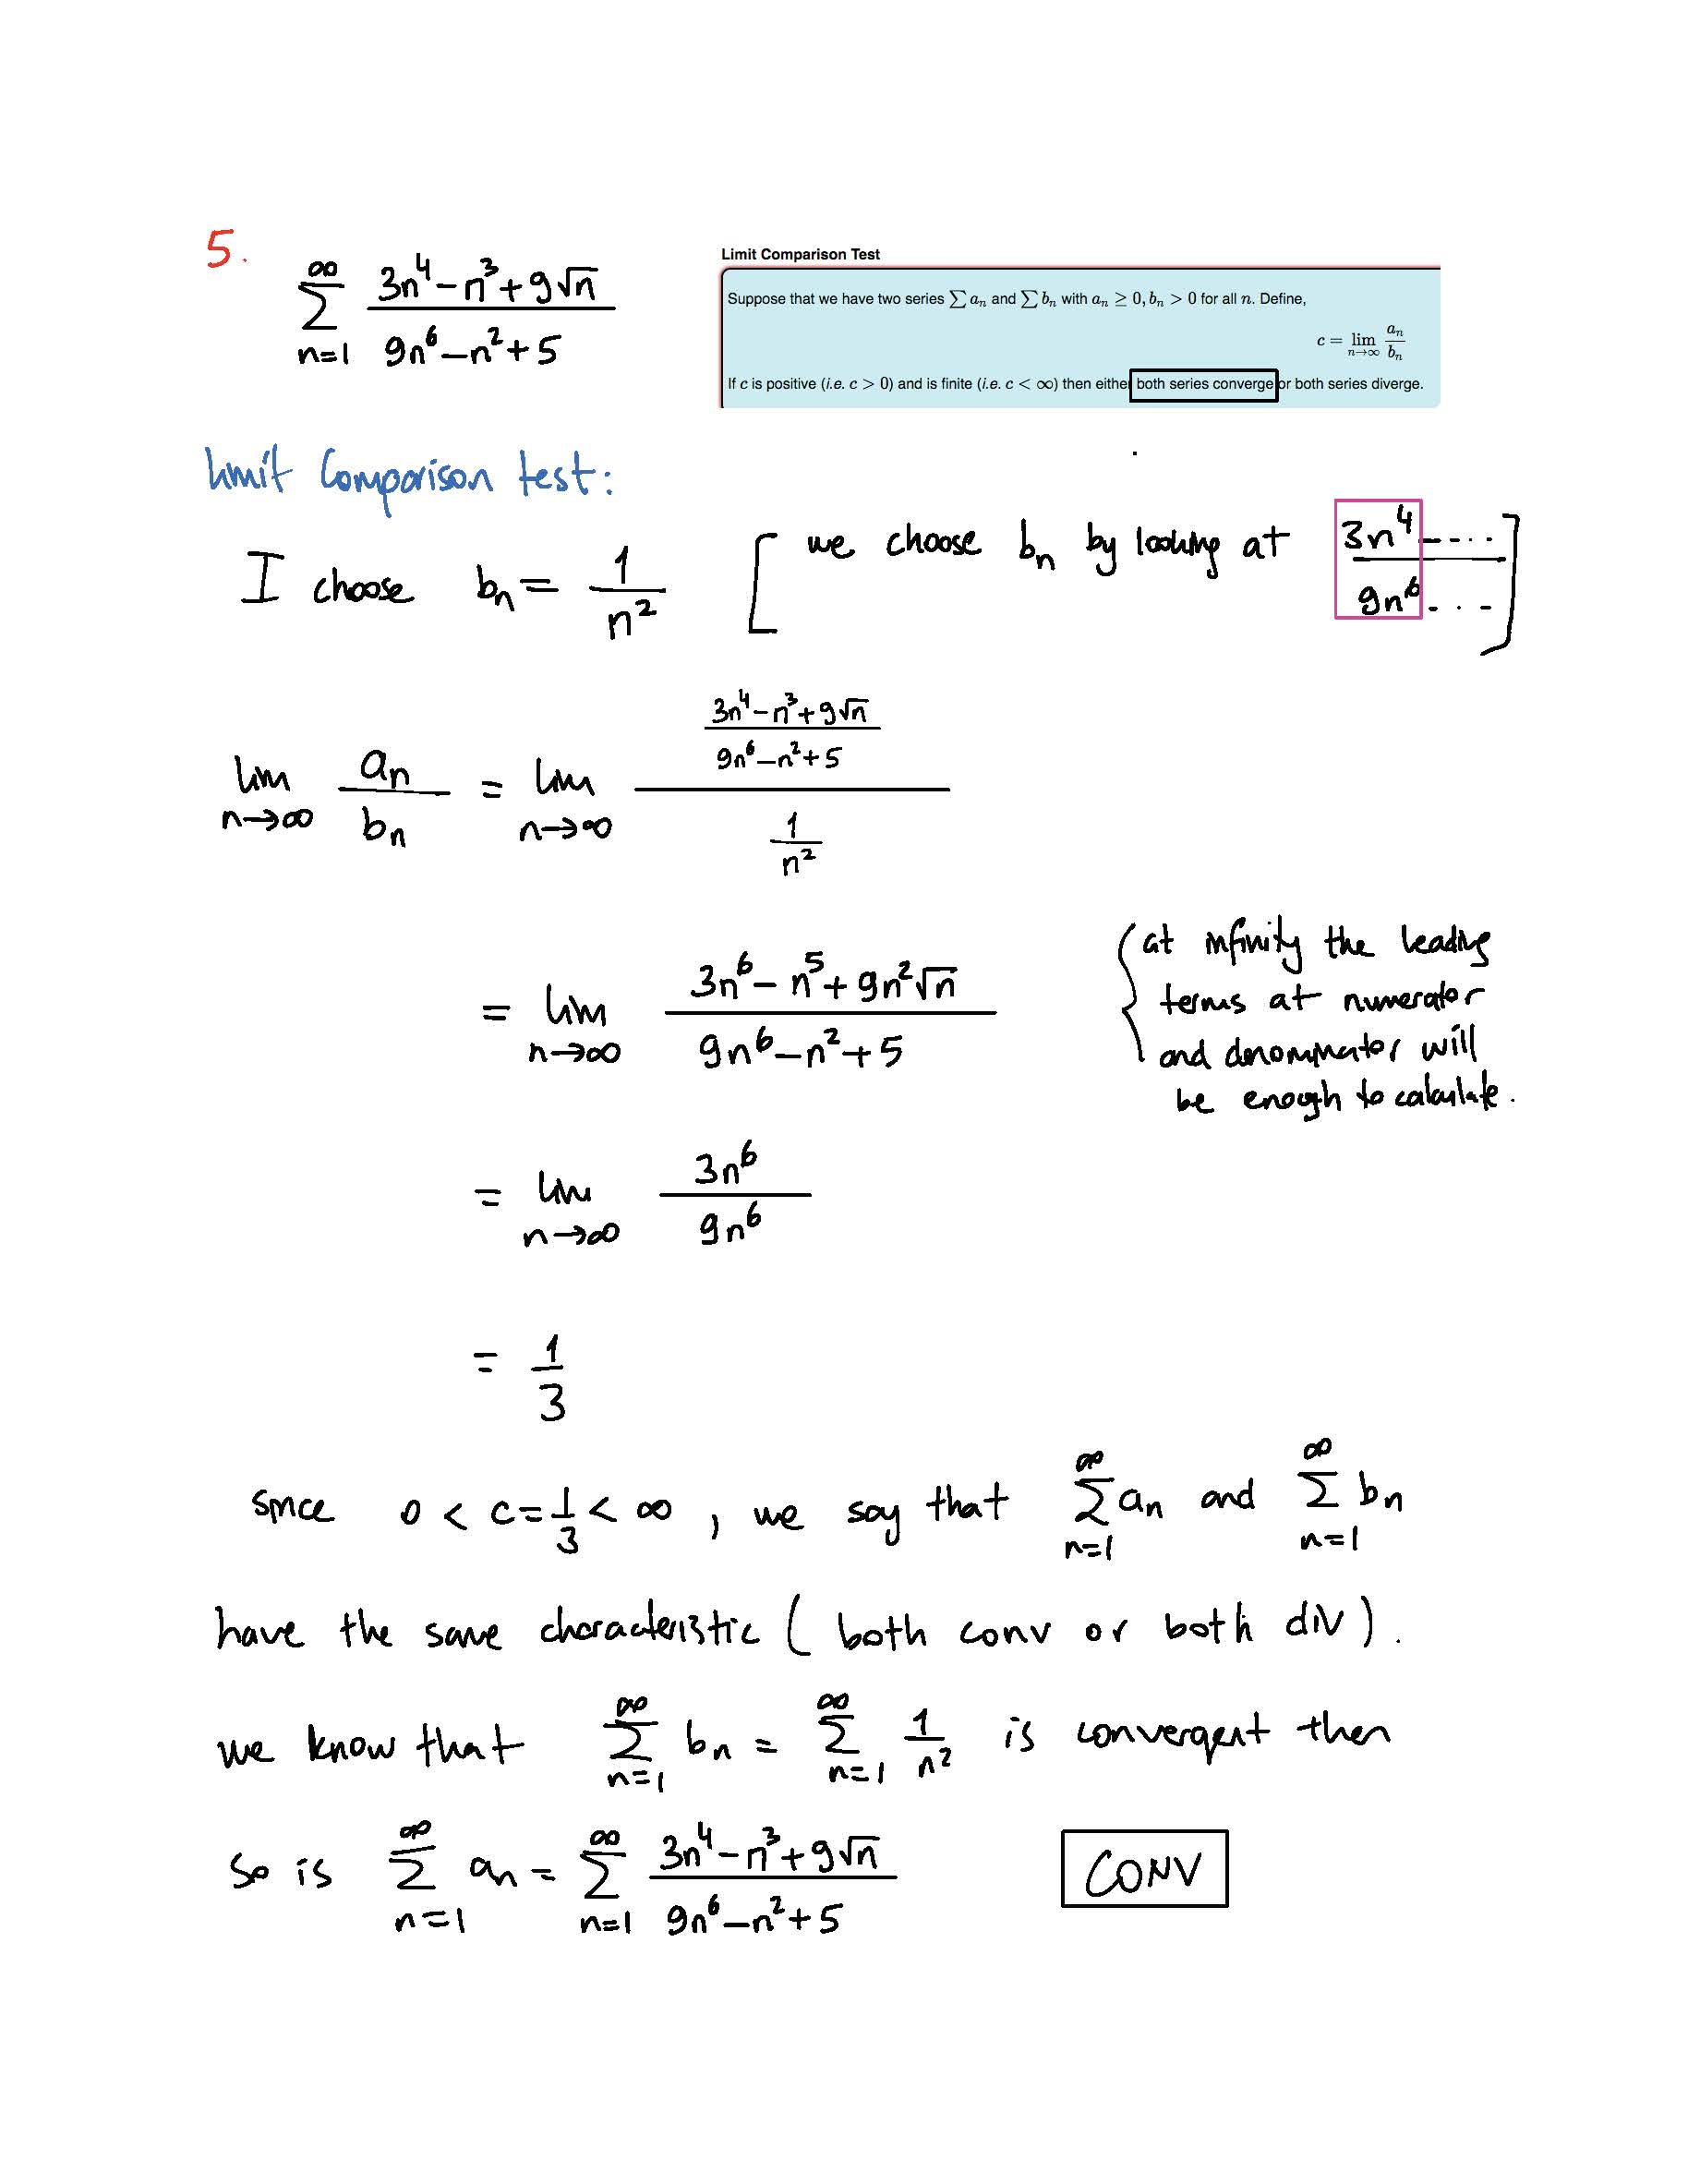 5.
∞ ∑ n=1 (3n⁴ − n³ + 9√n) / (9n⁶ − n² + 5)
Limit Comparison Test
Suppose that we have two series ∑ aₙ and ∑ bₙ with aₙ ≥ 0, bₙ > 0 for all n. Define,
c = lim n→∞ aₙ / bₙ
If c is positive (i.e. c > 0) and is finite (i.e. c < ∞) then either both series converge or both series diverge.
limit Comparison test:
I choose bₙ = 1 / n² [ we choose bₙ by looking at 3n⁴ - ---- / 9n⁶ - - - ]
lim n→∞ aₙ / bₙ = lim n→∞ ((3n⁴ − n³ + 9√n) / (9n⁶ − n² + 5)) / (1 / n²)
= lim n→∞ (3n⁶ − n⁵ + 9n²√n) / (9n⁶ − n² + 5)
{ at infinity the leading
terms at numerator
and denominator will
be enough to calculate.
= lim n→∞ 3n⁶ / 9n⁶
= 1 / 3
since 0 < c = 1/3 < ∞ , we say that ∞ ∑ n=1 aₙ and ∞ ∑ n=1 bₙ
have the same characteristic ( both conv or both div ) .
we know that ∞ ∑ n=1 bₙ = ∞ ∑ n=1 1 / n² is convergent then
so is ∞ ∑ n=1 aₙ = ∞ ∑ n=1 (3n⁴ − n³ + 9√n) / (9n⁶ − n² + 5) CONV